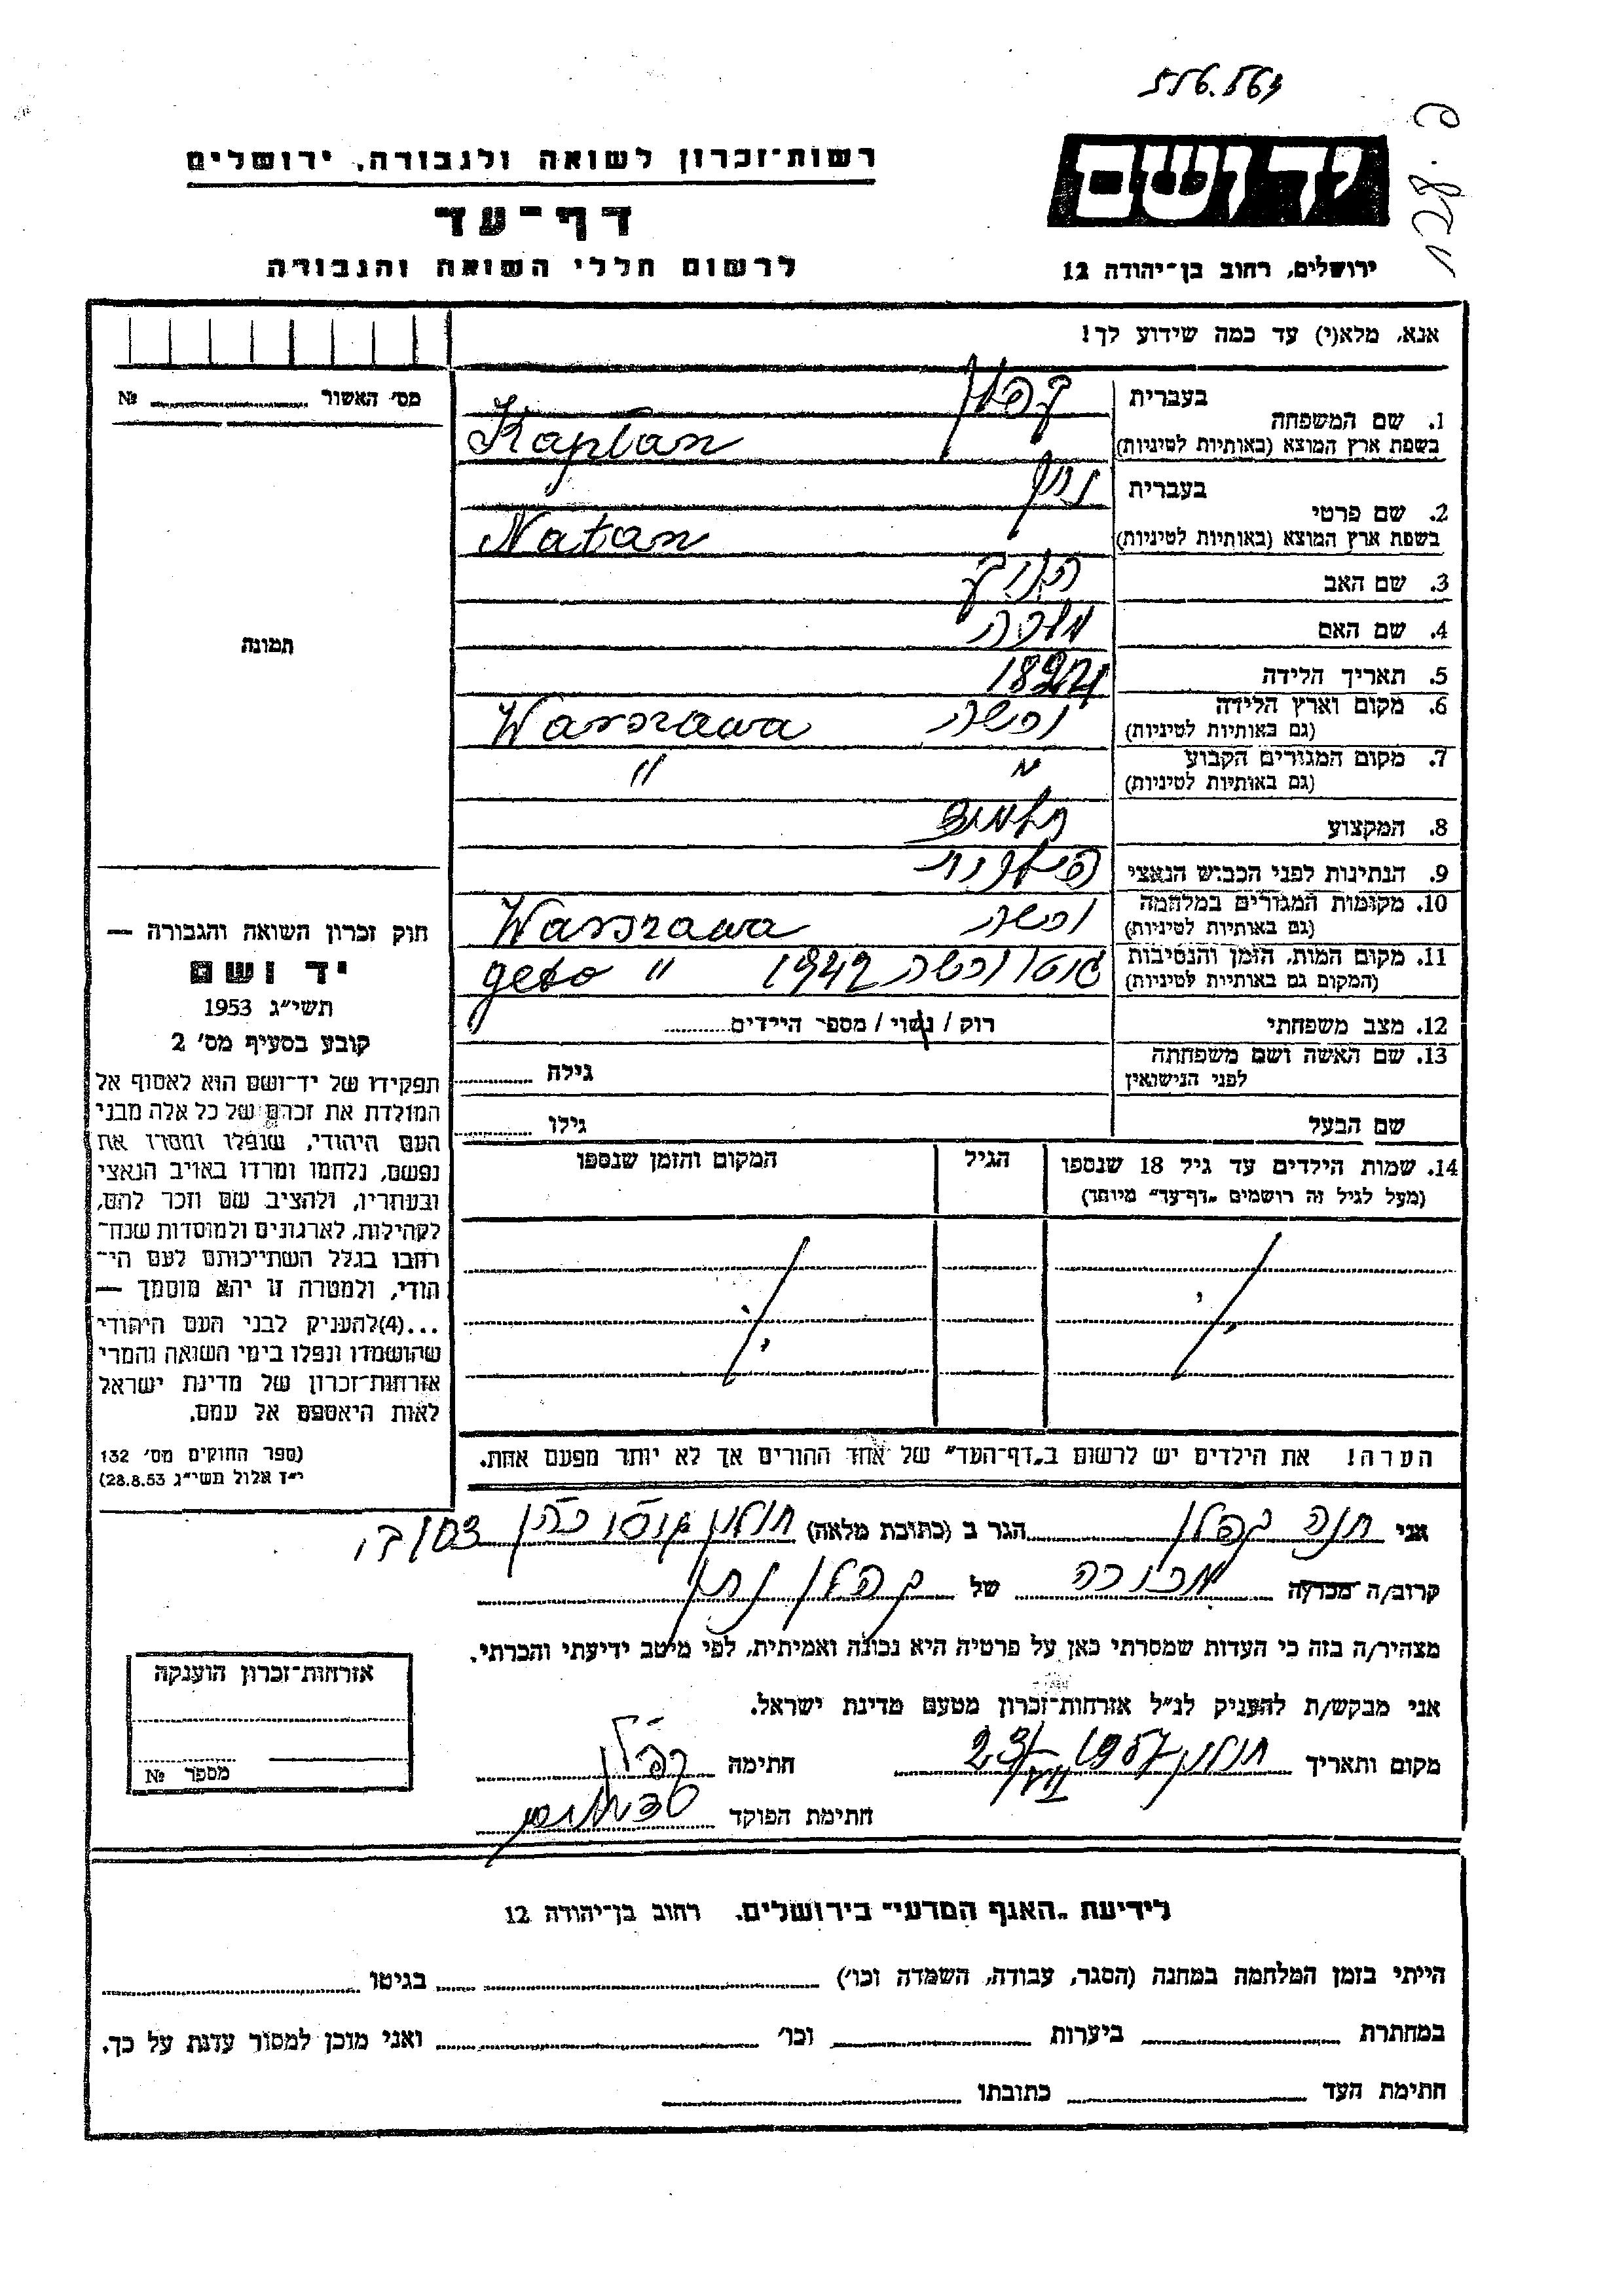 יד ושם
ירושלים, רחוב בן־יהודה 12
רשות־זכרון לשואה ולגבורה, ירושלים
דף־עד
לרשום חללי השואה והגבורה
אנא, מלא(י) עד כמה שידוע לך!
מס׳ האשור № 
1. שם המשפחה בעברית קפלן
בשפת ארץ המוצא (באותיות לטיניות) Kaplan
2. שם פרטי בעברית נתן
בשפת ארץ המוצא (באותיות לטיניות) Natan
3. שם האב
4. שם האם
5. תאריך הלידה
6. מקום וארץ הלידה (גם באותיות לטיניות) ורשה Warszawa
7. מקום המגורים הקבוע (גם באותיות לטיניות) " "
8. המקצוע
9. הנתינות לפני הכבוש הנאצי פולנית
10. מקומות המגורים במלחמה (גם באותיות לטיניות) ורשה Warszawa
11. מקום המות, הזמן והנסיבות (המקום גם באותיות לטיניות) גטו ורשה 1942 " geto
12. מצב משפחתי רוק / נשוי / מספר הילדים
13. שם האשה ושם משפחתה לפני הנישואין גילה
שם הבעל גילו
14. שמות הילדים עד גיל 18 שנספו הגיל המקום והזמן שנספו
(מעל לגיל זה רושמים „דף־עד" מיוחד)
הערה! את הילדים יש לרשום ב„דף־העד" של אחד ההורים אך לא יותר מפעם אחת.
תמונה
חוק זכרון השואה והגבורה —
יד ושם
תשי״ג 1953
קובע בסעיף מס׳ 2
תפקידו של יד־ושם הוא לאסוף אל
המולדת את זכרם של כל אלה מבני
העם היהודי, שנפלו ומסרו את
נפשם, נלחמו ומרדו באויב הנאצי
ובעוזריו, ולהציב שם וזכר להם,
לקהילות, לארגונים ולמוסדות שנח־
רחבו בגלל השתייכותם לעם הי־
הודי, ולמטרה זו יהא מוסמך —
...(4)להעניק לבני העם היהודי
שהושמדו ונפלו בימי השואה והמרי
אזרחות־זכרון של מדינת ישראל
לאות היאספם אל עמם.
(ספר החוקים מס׳ 132
י״ז אלול תשי״ג 28.8.53)
אני חנה קפלן הגר ב (כתובת מלאה) חולון
קרוב/ה מכר/ה מכירה של קפלן נתן
מצהיר/ה בזה כי העדות שמסרתי כאן על פרטיה היא נכונה ואמיתית, לפי מיטב ידיעתי והכרתי.
אני מבקש/ת להעניק לנ״ל אזרחות־זכרון מטעם מדינת ישראל.
מקום ותאריך חולון 23/VII 1957 חתימה קפלן
חתימת הפוקד
אזרחות־זכרון הוענקה
מספר №
לידיעת „האגף המדעי" בירושלים, רחוב בן־יהודה 12
הייתי בזמן המלחמה במחנה (הסגר, עבודה, השמדה וכו׳) בגיטו
במחתרת ביערות וכו׳ ואני מוכן למסור עדות על כך.
חתימת העד כתובתו